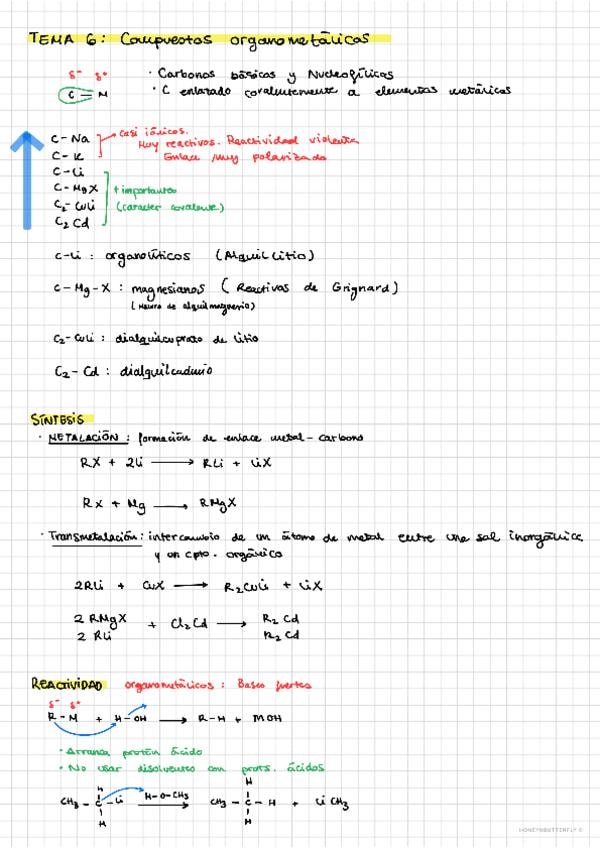 TEMA 6: Compuestos organometálicos
δ⁻ δ⁺ · Carbonos básicos y Nucleofílicos
C — M · C enlazado covalentemente a elementos metálicos
C-Na casi iónicos.
Muy reactivos. Reactividad violenta
C-K Enlace muy polarizado
C-Li
C-MgX + importantes
C₂-CuLi (caracter covalente)
C₂Cd
C-Li : organolíticos (Alquil Litio)
C-Mg-X : magnesianos (Reactivos de Grignard)
(Haluro de alquilmagnesio)
C₂-CuLi : dialquilcuprato de litio
C₂-Cd : dialquilcadmio
SÍNTESIS
· METALACIÓN : formación de enlace metal-carbono
RX + 2Li → RLi + LiX
RX + Mg → RMgX
· Transmetalación : intercambio de un átomo de metal entre una sal inorgánica
y un cpto. orgánico
2RLi + CuX → R₂CuLi + LiX
2 RMgX + Cl₂Cd → R₂Cd
2 RLi R₂Cd
REACTIVIDAD organometálicos : Bases fuertes
δ⁻ δ⁺
R-M + H-OH → R-H + MOH
· Arranca protón ácido
· No usar disolventes con prots. ácidos
H H
CH₃-C-Li H-O-CH₃ → CH₃-C-H + LiCH₃
H H
HONEYNBUTTERFLY ©